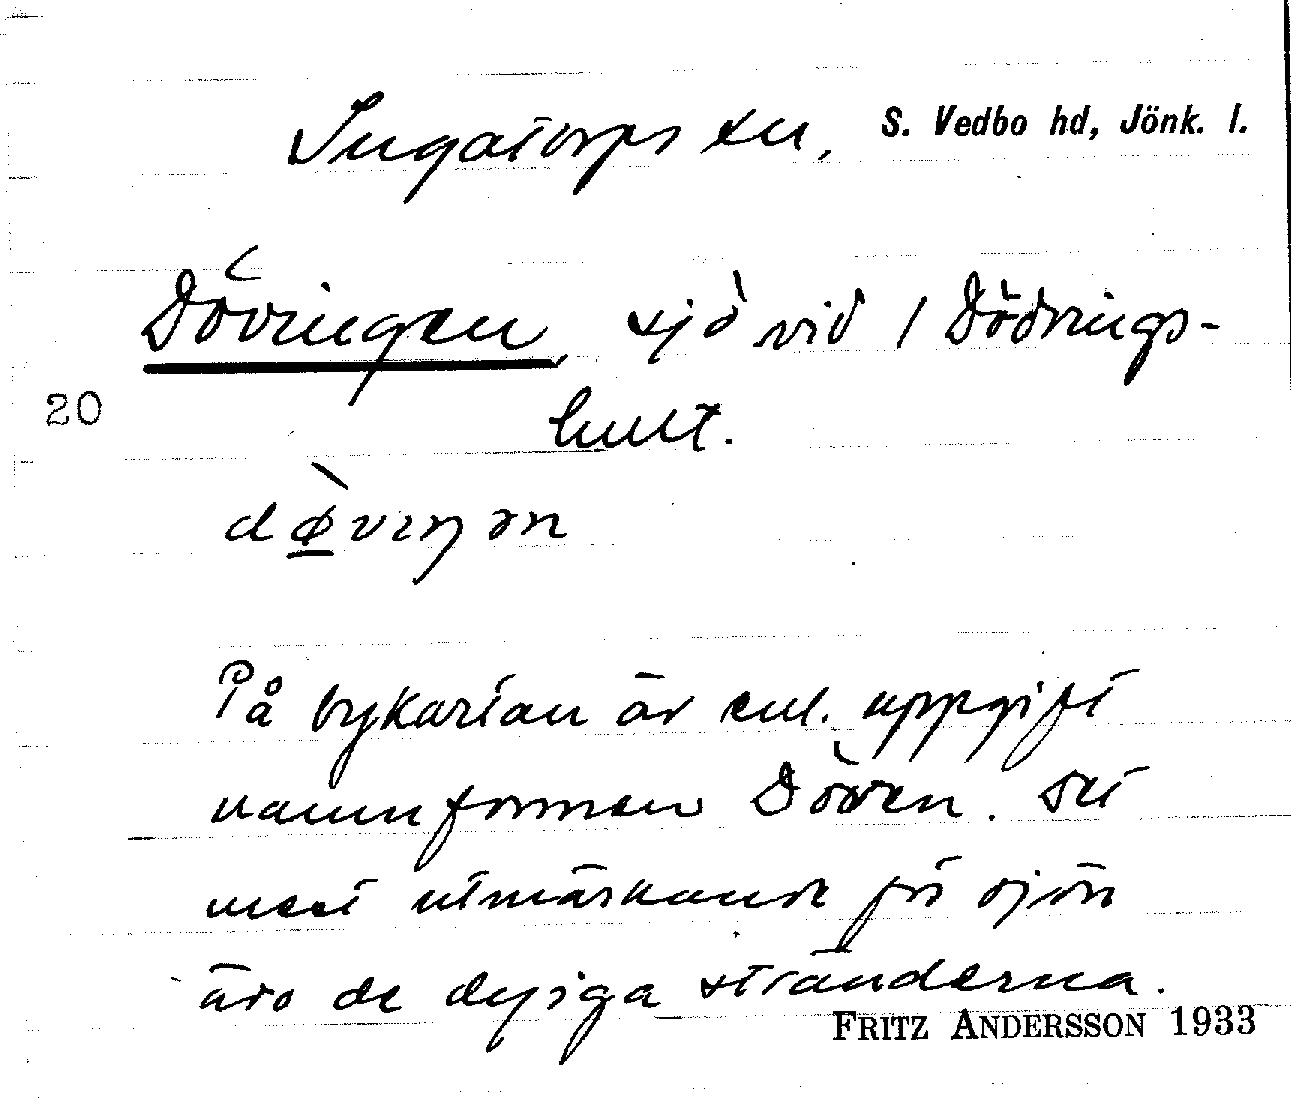 Ingatorps sn, S. Vedbo hd, Jönk. l.
Dövringen, sjö vid 1 Dödrings-
20
hult.
dø̱̀vıŋən
På bykartan är enl. uppgift
namnformen Döven. Det
mest utmärkande för sjön
äro de dyiga stränderna.
FRITZ ANDERSSON 1933